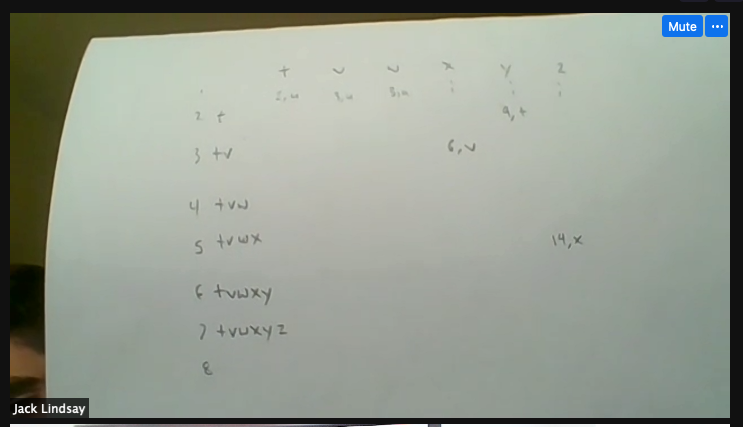 Mute ...
t v w x y z
2,u
2 t 9,t
3 tv 6,v
4 tvw
5 tvwx 14,x
6 tvwxy
7 tvwxyz
8
Jack Lindsay